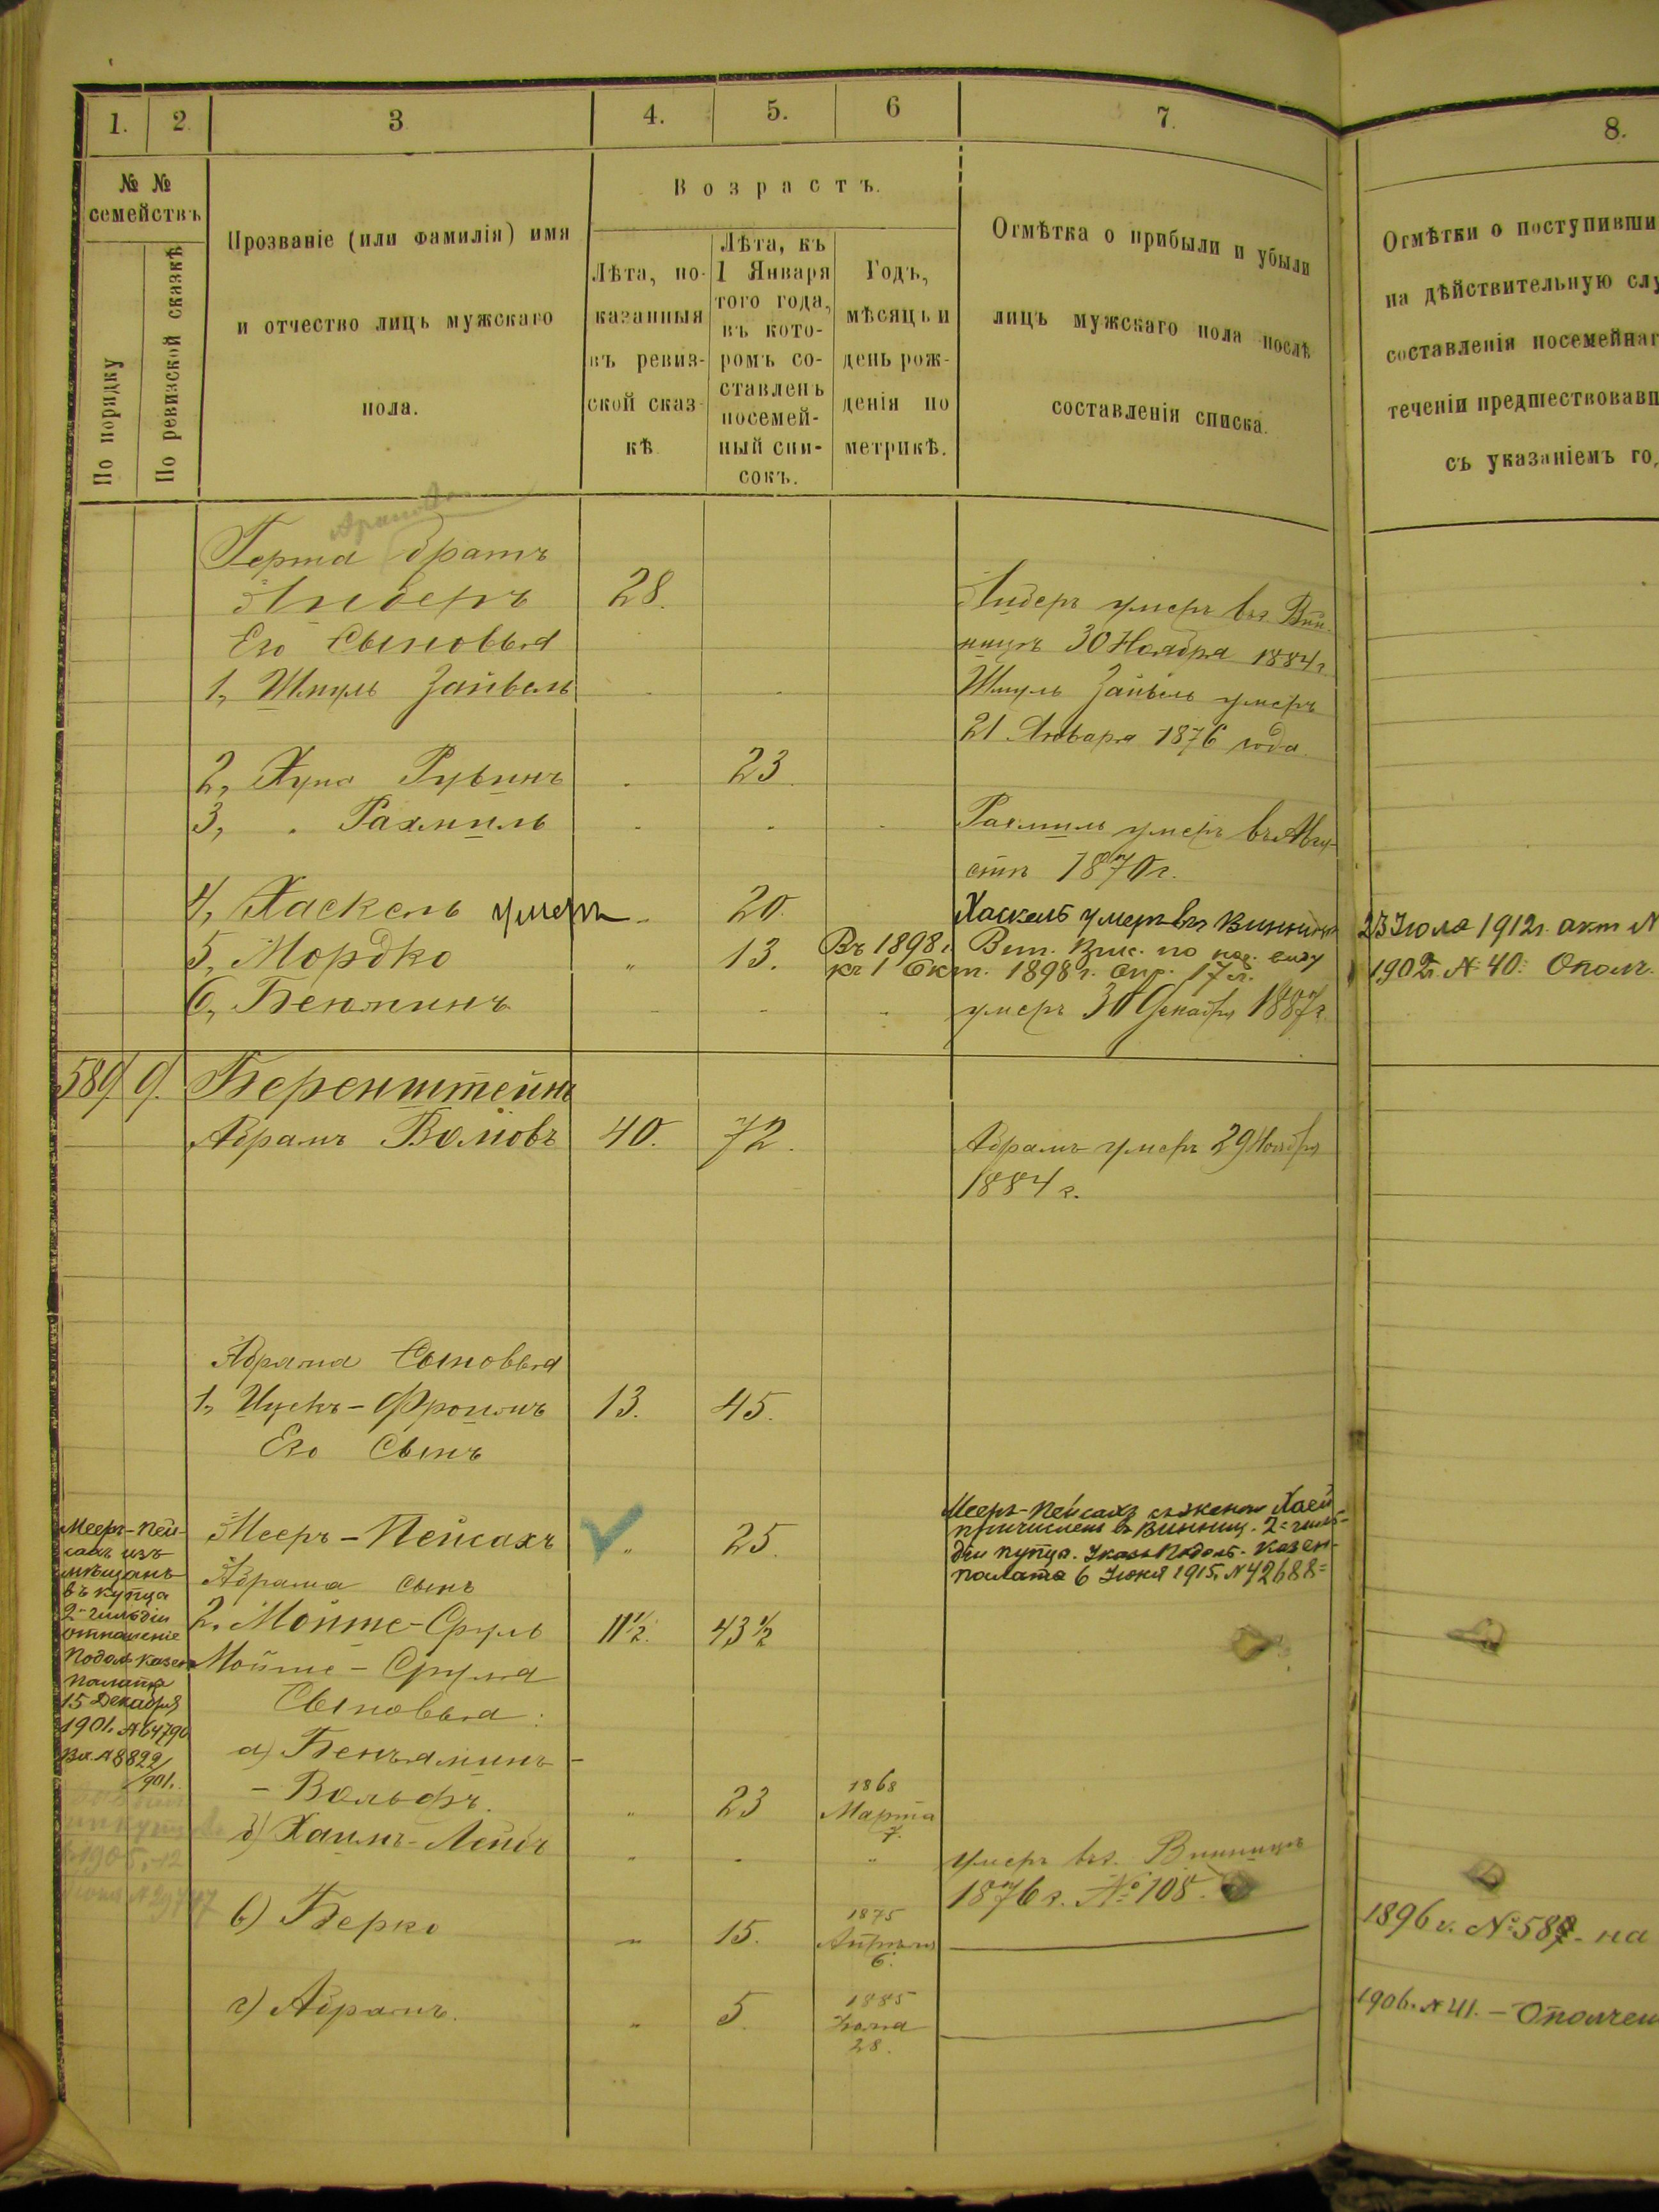 1.
2.
3
4.
5.
6
7.
8.
№ №
семействъ
По порядку
По ревизской сказкѣ
Прозваніе (или фамилія) имя
и отчество лицъ мужскаго
пола.
Возрастъ.
Лѣта, по-
казанныя
въ ревиз-
ской сказ-
кѣ
Лѣта, къ
1 Января
того года,
въ кото-
ромъ со-
ставленъ
посемей-
ный спи-
сокъ.
Годъ,
мѣсяцъ и
день рож-
денія по
метрикѣ.
Отмѣтка о прибыли и убыли
лицъ мужскаго пола послѣ
составленія списка.
Отмѣтки о поступивши
на дѣйствительную слу
составленія посемейнаг
теченіи предшествовавш
съ указаніемъ го
братъ
Либеръ 28. Либеръ умеръ въ г. Вин-
Его Сыновья ницѣ 30 Ноября 1884 г
1, Шмуль Зайвель Шмуль Зайвель умеръ
21 Января 1876 года
2, Рувинъ 23
3, Рахмиль Рахмиль умеръ въ Авгу-
стѣ 1870 г.
4, Хаскель умеръ 20. Хаскель умеръ въ Винницѣ 23 Іюля 1912 г. акт №
5, Мордко 13. Въ 1898 г. по нар. виду
къ 1 Окт. 1898 г. опр. 17 л. 1902 г. № 40: Ополч.
6, Беньминъ умеръ 30 Декабря 1887 г.
589 9. Беренштейнъ
Абрамъ Волковъ 40. 72. Абрамъ умеръ 29 Ноября
1884 г.
Абрама Сыновья
1, Ицекъ-Фроимъ 13. 45.
Его Сынъ
Мееръ-Пейсахъ 25. Мееръ-Пейсахъ съ женою Хаей
причисленъ въ Винниц. 2=гиль-
діи купца. Указъ Подол. Казен-
палаты 6 Іюня 1915, № 42688=
Мееръ-Пей-
сахъ изъ
мѣщанъ
въ купца
2=гильдіи
отношеніе
Подол. казен
палаты
15 Декабря
1901. № 64790
Вх. № 8822/
901.
Абрама сынъ
2. Мойше-Сруль 11½. 43½
Мойше-Сруля
Сыновья:
а) Беньяминъ-
-Вольфъ. 23 1868
Марта
7.
б) Хаимъ-Лейбъ умеръ въ г. Винницѣ
1876 г. № 108.
в) Берко 15. 1875
Апрѣля
6.
1896 г. № 587 - на
г) Абрамъ. 5. 1885
28.
1906. № 41. - Ополчен